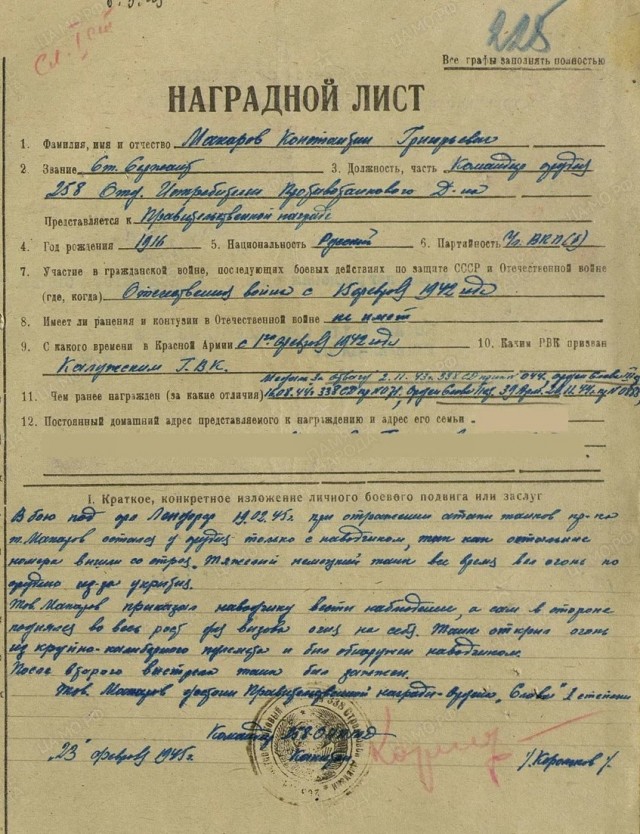 225
Все графы заполнять полностью
НАГРАДНОЙ ЛИСТ
1. Фамилия, имя и отчество Макаров Константин Григорьевич
2 Звание Ст. Сержант 3. Должность, часть Командир орудия
258 Отд. Истребительн Противотанкового Д-на
Представляется к Правительственной награде
4. Год рождения 1916 5. Национальность Русский 6. Партийность Чл. ВКП(б)
7. Участие в гражданской войне, последующих боевых действиях по защите СССР и Отечественной войне
(где, когда) Отечественная война с 15 февраля 1942 года
8. Имеет ли ранения и контузии в Отечественной войне не имеет
9. С какого времени в Красной Армии с 1го февраля 1942 года 10. Каким РВК призван
Калужским Г.В.К.
Медаль За Отвагу 2.11.43г. 338 СД приказ 044, орден Славы
11. Чем ранее награжден (за какие отличия) 16.08.44г. 338 СД Орден Славы 39 Арм.
12. Постоянный домашний адрес представляемого к награждению и адрес его семьи
I. Краткое, конкретное изложение личного боевого подвига или заслуг
В бою под 19.02.45г. при отражении атаки танков пр-ка
т. Макаров остался у орудия только с наводчиком, так как остальные
номера вышли со строя. Тяжелый немецкий танк все время вел огонь по
орудию из-за укрытия.
Тов. Макаров приказал наводчику вести наблюдение, а сам в стороне
поднялся во весь рост для вызова огня на себя. Танк открыл огонь
из крупно-калиберного пулемета и был обнаружен наводчиком.
После второго выстрела танк был зажжен.
Тов. Макаров достоин Правительственной награды Ордена „Слава" 1 степени
Командир 258 ОИПТД
„23" февраля 1945г. Капитан